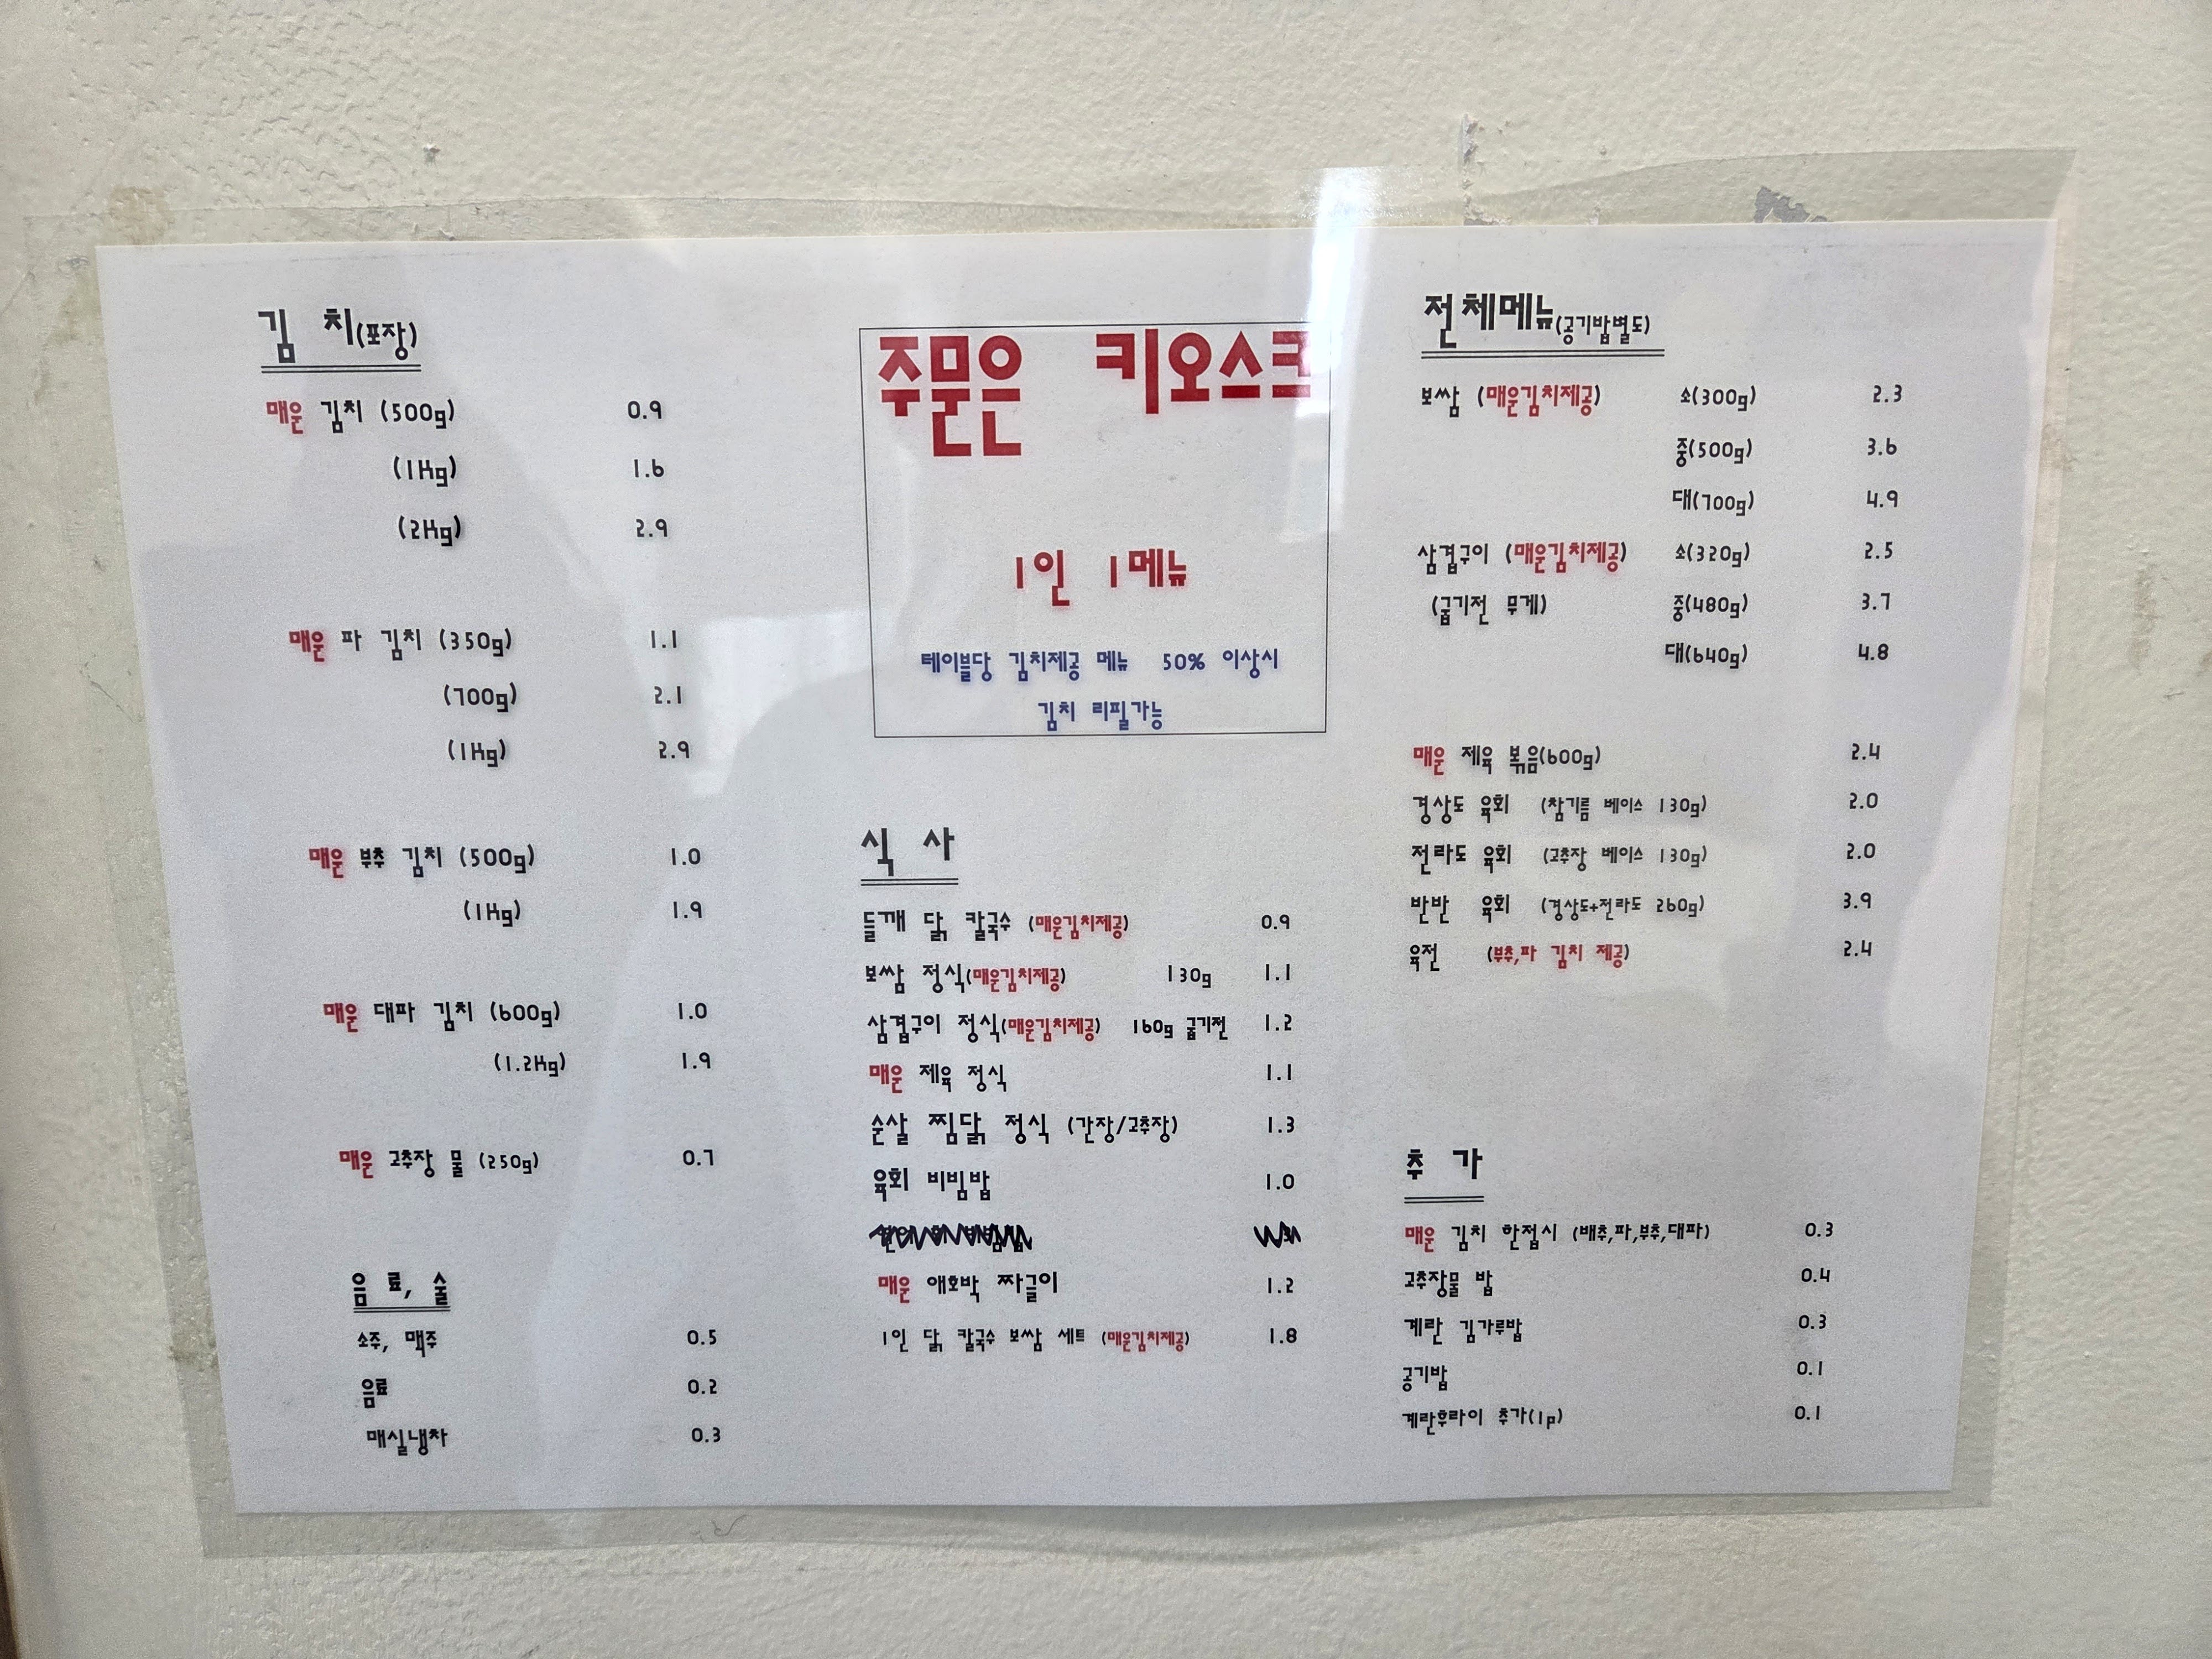 김 치(포장)
매운 김치 (500g) 0.9
(1Kg) 1.6
(2Kg) 2.9
매운 파 김치 (350g) 1.1
(700g) 2.1
(1Kg) 2.9
매운 부추 김치 (500g) 1.0
(1Kg) 1.9
매운 대파 김치 (600g) 1.0
(1.2Kg) 1.9
매운 고추장 물 (250g) 0.7
음 료, 술
소주, 맥주 0.5
음료 0.2
매실냉차 0.3
주문은 키오스크
1인 1메뉴
테이블당 김치제공 메뉴 50% 이상시
김치 리필가능
식 사
들깨 닭 칼국수 (매운김치제공) 0.9
보쌈 정식(매운김치제공) 130g 1.1
삼겹구이 정식(매운김치제공) 160g 굽기전 1.2
매운 제육 정식 1.1
순살 찜닭 정식 (간장/고추장) 1.3
육회 비빔밥 1.0
매운 애호박 짜글이 1.2
1인 닭 칼국수 보쌈 세트 (매운김치제공) 1.8
전체메뉴(공기밥별도)
보쌈 (매운김치제공) 소(300g) 2.3
중(500g) 3.6
대(700g) 4.9
삼겹구이 (매운김치제공) 소(320g) 2.5
(굽기전 무게) 중(480g) 3.7
대(640g) 4.8
매운 제육 볶음(600g) 2.4
경상도 육회 (참기름 베이스 130g) 2.0
전라도 육회 (고추장 베이스 130g) 2.0
반반 육회 (경상도+전라도 260g) 3.9
육전 (부추,파 김치 제공) 2.4
추 가
매운 김치 한접시 (배추,파,부추,대파) 0.3
고추장물 밥 0.4
계란 김가루밥 0.3
공기밥 0.1
계란후라이 추가(1p) 0.1